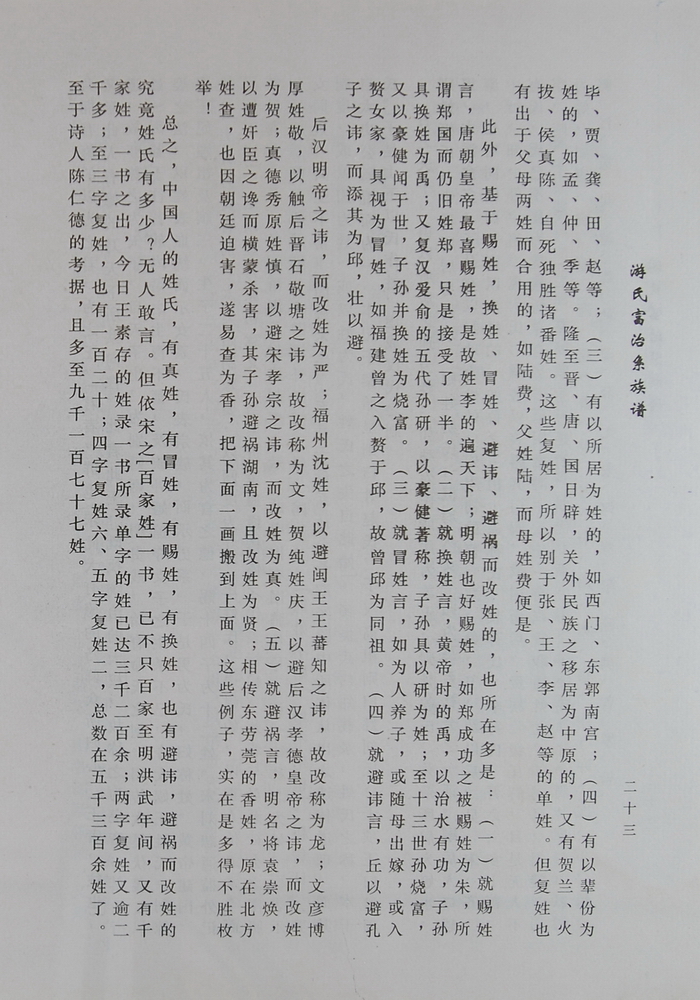 游氏富治系族谱
二十三
毕、贾、龚、田、赵等；（三）有以所居为姓的，如西门、东郭南宫；（四）有以辈份为
姓的，如孟、仲、季等。隆至晋、唐、国日辟，关外民族之移居为中原的，又有贺兰、火
拔、侯真陈、自死独胜诸番姓。这些复姓，所以别于张、王、李、赵等的单姓。但复姓也
有出于父母两姓而合用的，如陆费，父姓陆，而母姓费便是。
此外，基于赐姓，换姓、冒姓、避讳、避祸而改姓的，也所在多是：（一）就赐姓
言，唐朝皇帝最喜赐姓，是故姓李的遍天下；明朝也好赐姓，如郑成功之被赐姓为朱，所
谓郑国而仍旧姓郑，只是接受了一半。（二）就换姓言，黄帝时的禹，以治水有功，子孙
具换姓为禹；又复汉爱俞的五代孙研，以豪健著称，子孙具以研为姓；至十三世孙烧富，
又以豪健闻于世，子孙并换姓为烧富。（三）就冒姓言，如为人养子，或随母出嫁，或入
赘女家，具视为冒姓，如福建曾之入赘于邱，故曾邱为同祖。（四）就避讳言，丘以避孔
子之讳，而添其为邱，壮以避。
后汉明帝之讳，而改姓为严；福州沈姓，以避闽王王蕃知之讳，故改称为龙；文彦博
厚姓敬，以触后晋石敬塘之讳，故改称为文，贺纯姓庆，以避后汉孝德皇帝之讳，而改姓
为贺；真德秀原姓慎，以避宋孝宗之讳，而改姓为真。（五）就避祸言，明名将袁崇焕，
以遭奸臣之谗而横蒙杀害，其子孙避祸湖南，且改姓为贤；相传东劳莞的香姓，原在北方
姓查，也因朝廷迫害，遂易查为香，把下面一画搬到上面。这些例子，实在是多得不胜枚
举！
总之，中国人的姓氏，有真姓，有冒姓，有赐姓，有换姓，也有避讳，避祸而改姓的
究竟姓氏有多少？无人敢言。但依宋之[百家姓]一书，已不只百家至明洪武年间，又有千
家姓，一书之出，今日王素存的姓录一书所录单字的姓已达三千二百余；两字复姓又逾二
千多；至三字复姓，也有一百二十；四字复姓六、五字复姓二，总数在五千三百余姓了。
至于诗人陈仁德的考据，且多至九千一百七十七姓。